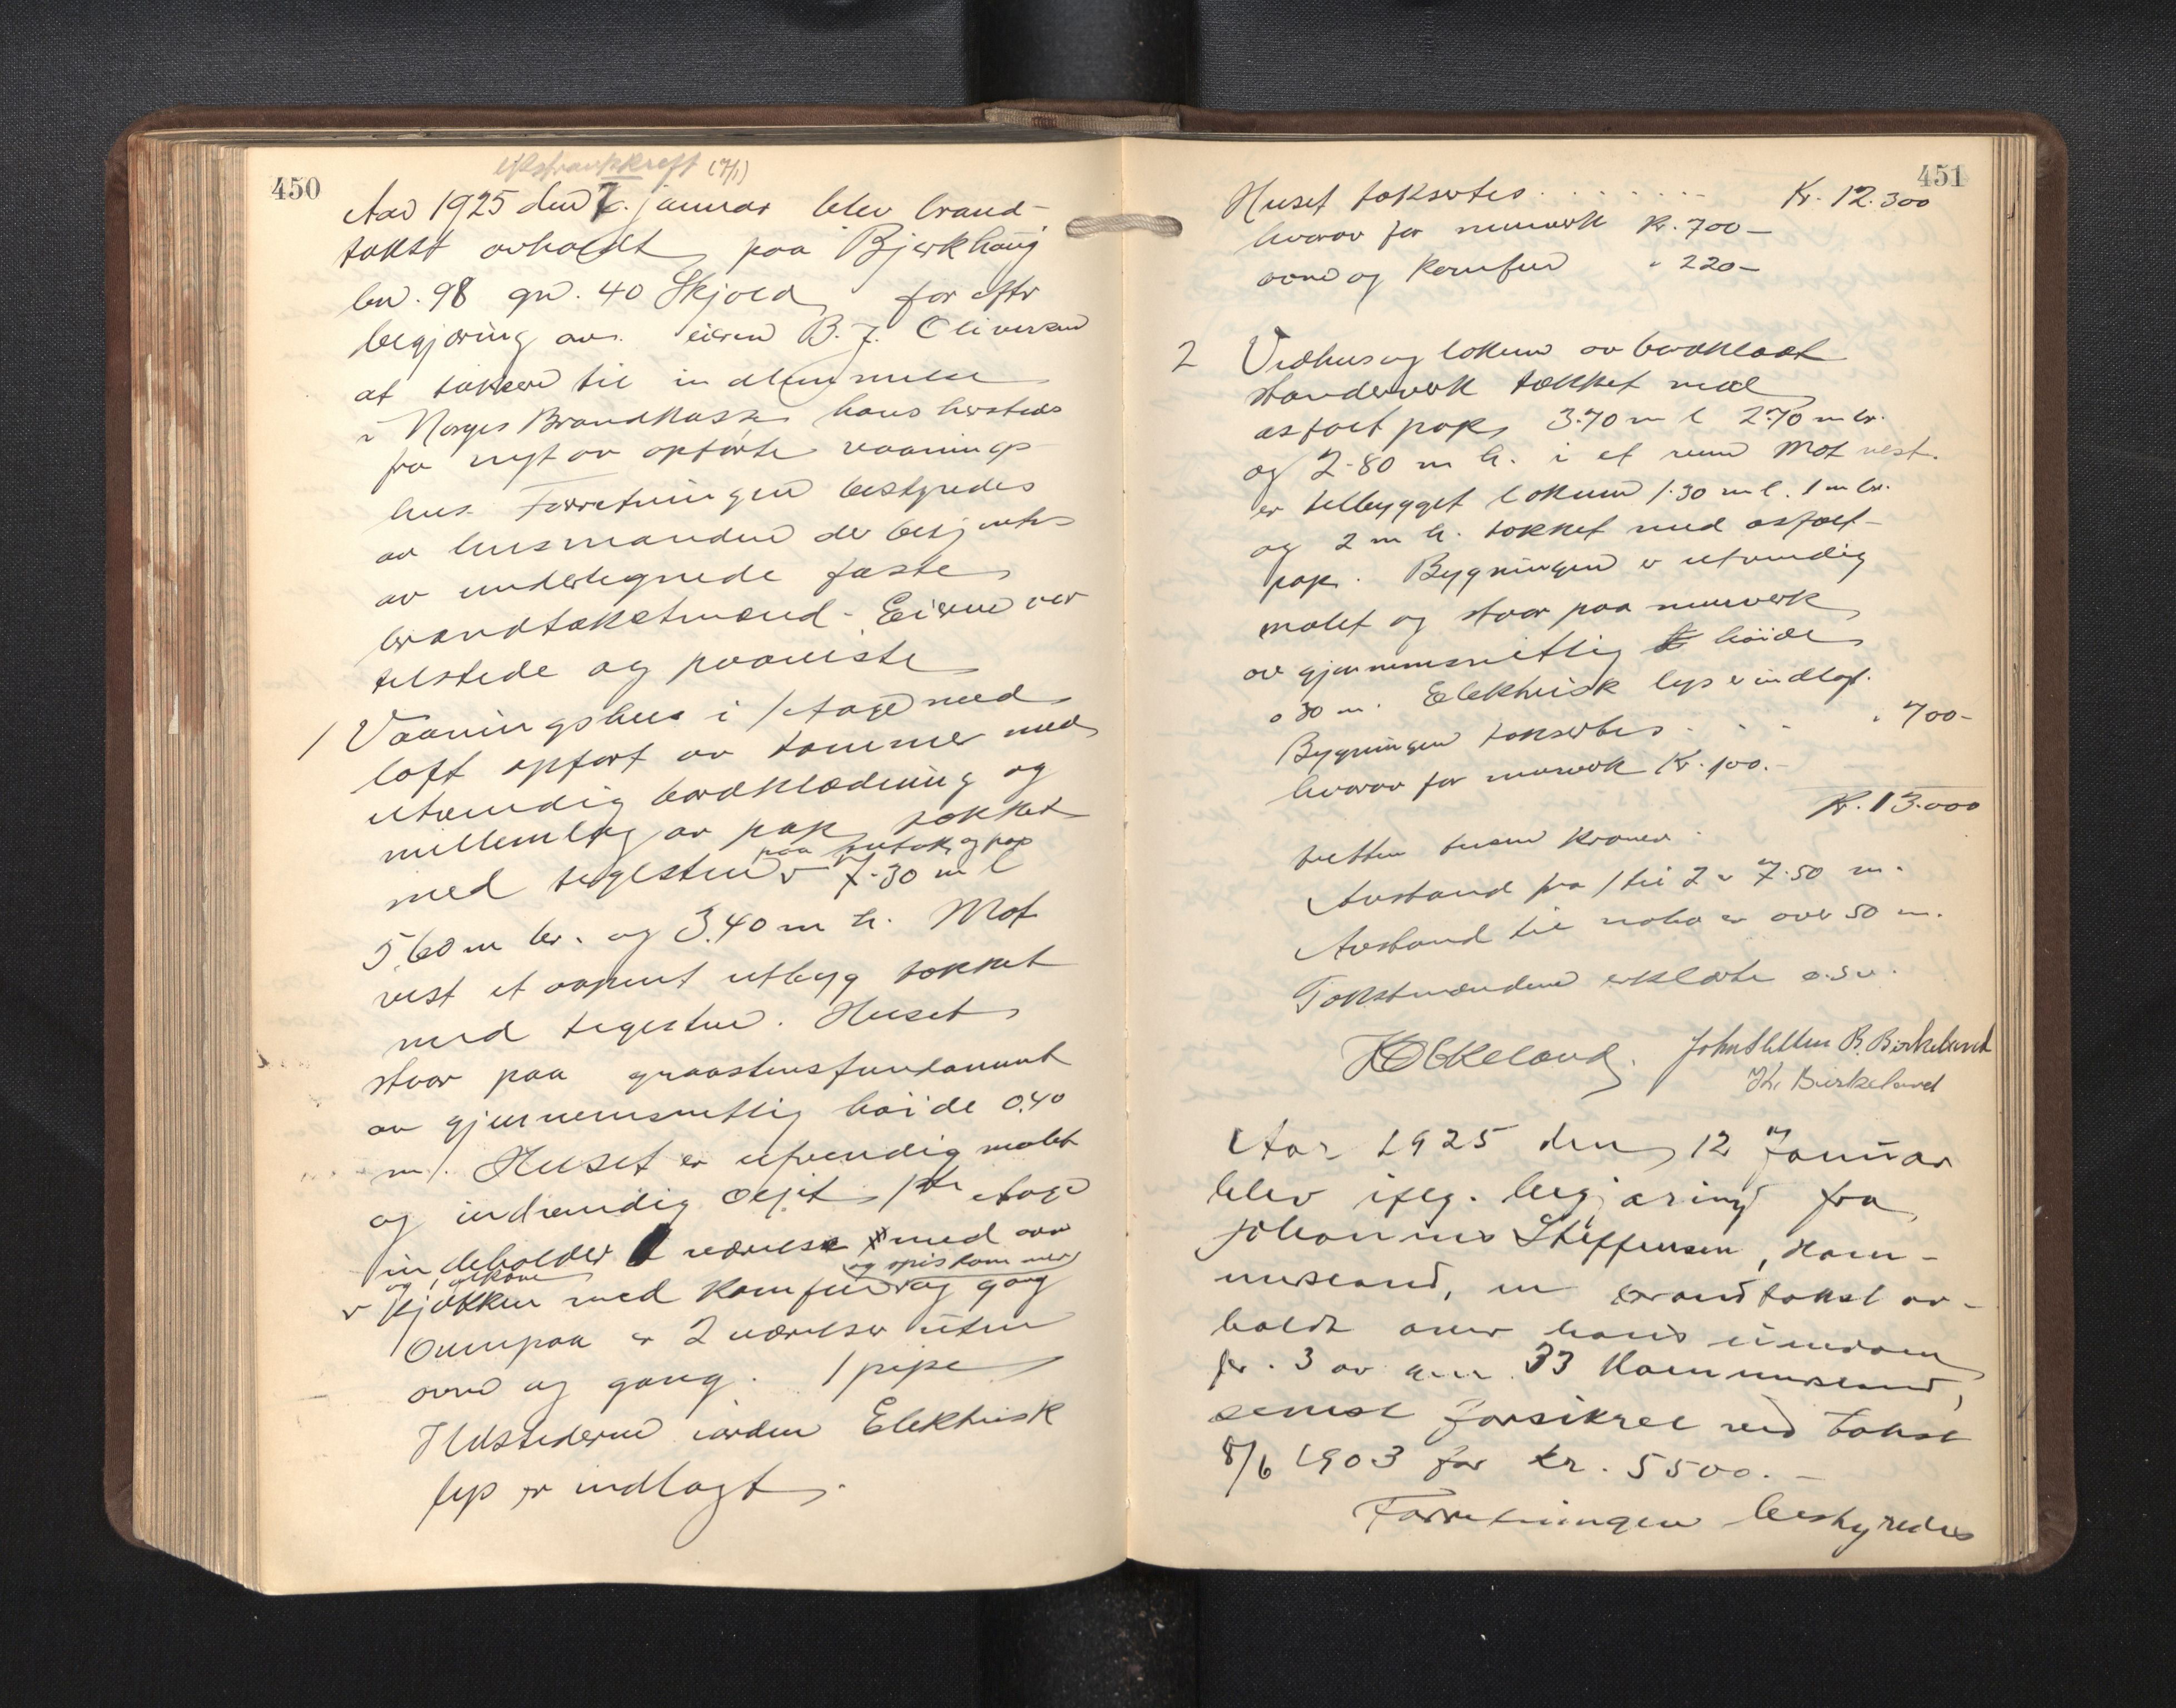 450
(7/1)
Aar 1925 den 7. januar blev brand-
takst avholdt paa Bjerkhaug
bn. 98 gn. 40 Skjold for efter
begjæring av eieren B. J. Oliversen
at taksere til indlemmelse
i Norges Brandkasse hans hersteds
fra nyt av opførte vaanings
hus. Forretningen bestyredes
av lensmanden der betjentes
av undertegnede faste
brandtakstmænd. Eieren var
tilstede og paaviste
1 Vaaningshus i 1 etage med
loft opført av tømmer med
utvendig bordklædning og
millemlæg av pap, tækket
med teglsten v 7.30 m l
paa sutak og pap
5.60 m br. og 3.40 m h. Mot
vest et aapent utbygg tækket
med teglsten. Huset
staar paa graastensfundament
av gjennemsnitlig høide 0.40
m. Huset er utvendig malet
og indvendig oljet. 1ste etage
indeholder værelse med ovn
og 1 alkove og spiskammer
v kjøkken med komfur v og gang
Ovenpaa er 2 værelser uten
ovne og gang. 1 pipe
Ildstederne i orden Elektrisk
lys er indlagt.
451
Huset takseres . . . . . . . Kr. 12.300
hvorav for murverk Kr. 700 -
ovne og komfur " 220 -
2 Vedhus og lokum av bordklædt
stænderverk tækket med
asfalt pap, 3.70 m l 2.70 m br.
og 2.80 m h. i et rum Mot vest.
er tilbygget lokum 1.30 m l. 1 m br.
og 2 m h. tækket med asfalt-
pap. Bygningen er utvendig
malet og staar paa murverk
av gjennemsnitlig høide
0.30 m. Elektrisk lys er indlagt.
Bygningen takseres . . . " 700 -
hvorav for murverk Kr. 100. -
Kr. 13.000
tretten tusen kroner.
Avstand fra 1 til 2 er 7.50 m.
Avstand til nabo er over 50 m.
Takstmændene erklærte o.s.v.
John Sletten B. Birkeland
Birkeland
Aar 1925 den 12 Januar
blev ifølg. begjæring fra
Johannes Steffensen, Ham-
mersland, en brandtakst av-
holdt over hans eiendom
br. 3 av gnr. 33 Hammersland,
senest forsikret ved takst
8/6 1903 for kr. 5500. -
Forretningen bestyredes